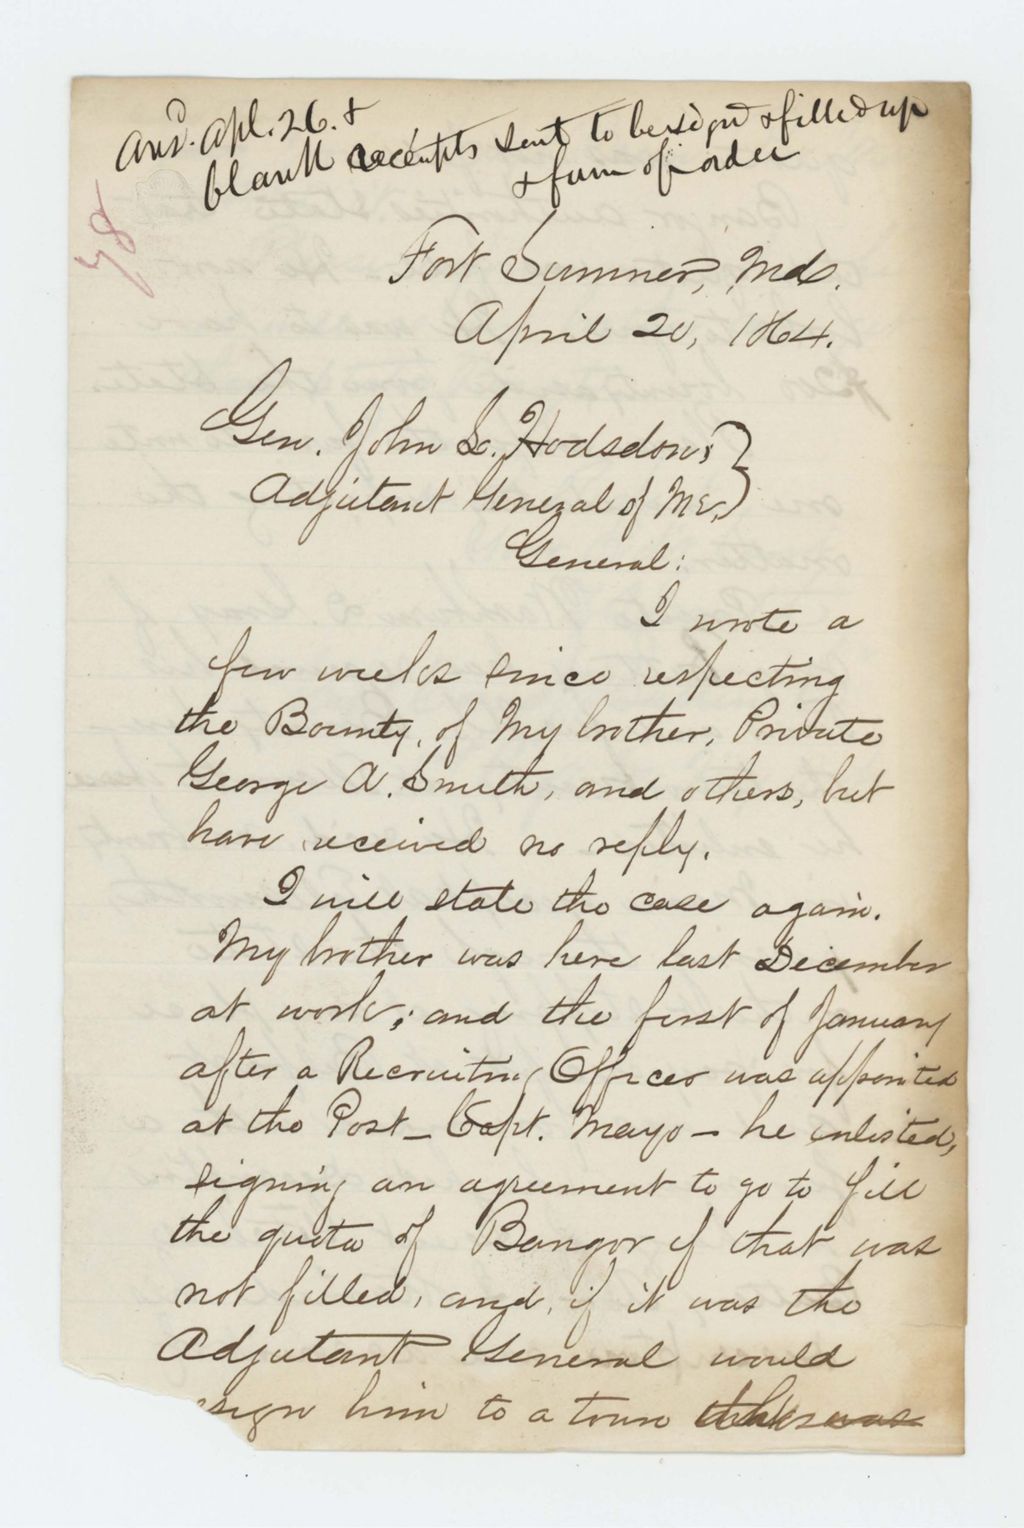 Ansd. Apl. 26. &
blank receipts sent to be signd & filled up
& form of order
78
Fort Sumner, Md.
April 20, 1864.
Gen. John L. Hodsdon,
Adjutant General of Me.
General:
I wrote a
few weeks since respecting
the Bounty, of my brother, Private
George A. Smith, and others, but
have received no reply.
I will state the case again.
My brother was here last December
at work; and the first of January
after a Recruiting Officer was appointed
at the Post - Capt. Mayo - he enlisted,
signing an agreement to go to fill
the quota of Bangor if that was
not filled, and, if it was the
Adjutant General would
sign him to a town